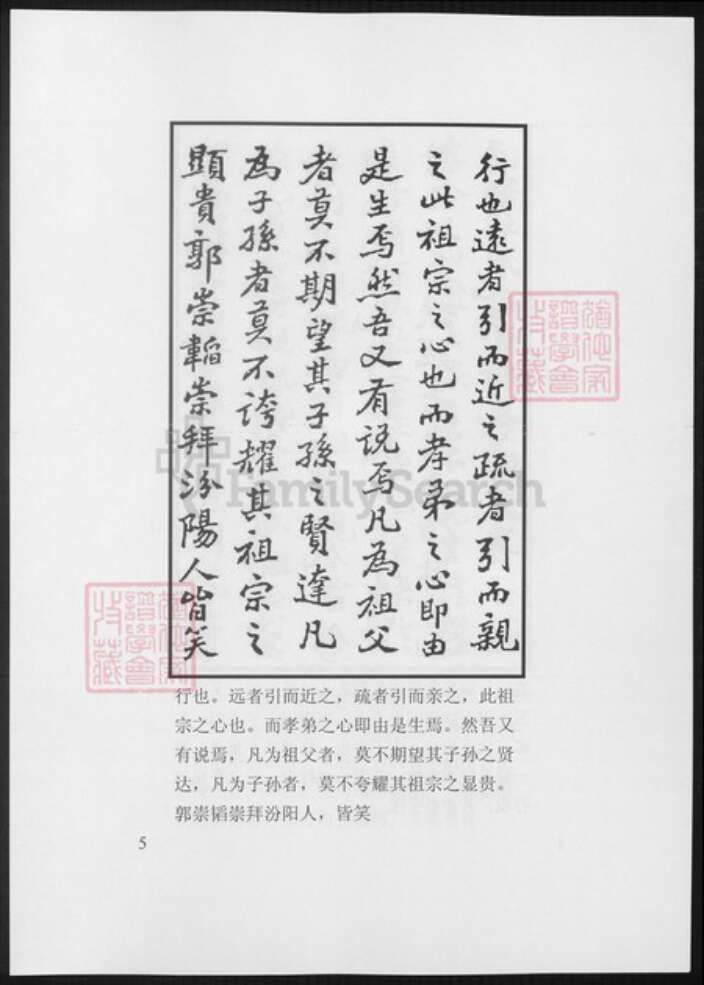 行也遠者引而近之疏者引而親
之此祖宗之心也而孝弟之心即由
是生焉然吾又有説焉凡為祖父
者莫不期望其子孫之賢達凡
為子孫者莫不誇耀其祖宗之
顯貴郭崇韜崇拜汾陽人皆笑
行也。远者引而近之，疏者引而亲之，此祖
宗之心也。而孝弟之心即由是生焉。然吾又
有说焉，凡为祖父者，莫不期望其子孙之贤
达，凡为子孙者，莫不夸耀其祖宗之显贵。
郭崇韬崇拜汾阳人，皆笑
5
FamilySearch